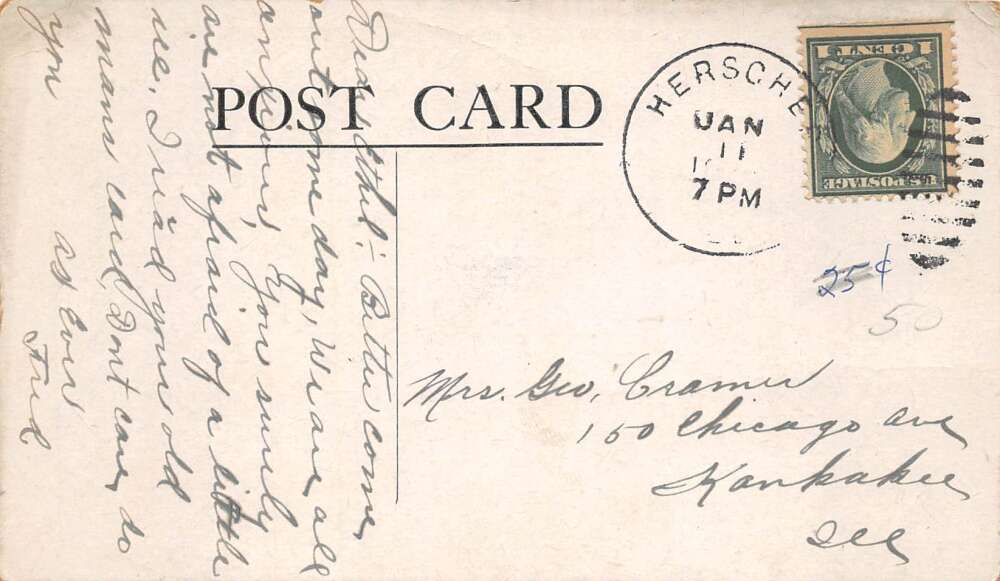 POST CARD
HERSCHE
JAN
11
7 PM
1 CENT 1
U.S. POSTAGE
25¢
50
Dear Ethel:- Better come
out some day, We are all
anxious, You surely
are not afraid of a little
ice. I read your old
mans card, Dont care, do
you
as Ever
Fred
Mrs. Geo, Cramer
150 Chicago Ave
Kankakee
Ill